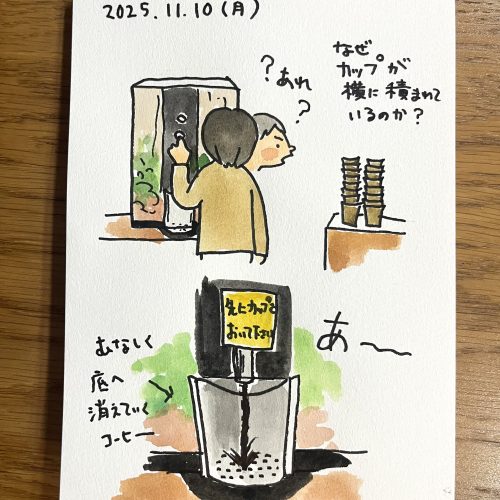 2025.11.10(月)
?あれ
?
なぜ
カップが
横に積まれて
いるのか?
先にカップを
おいて下さい
あ〜
むなしく
底へ
消えていく
コーヒー